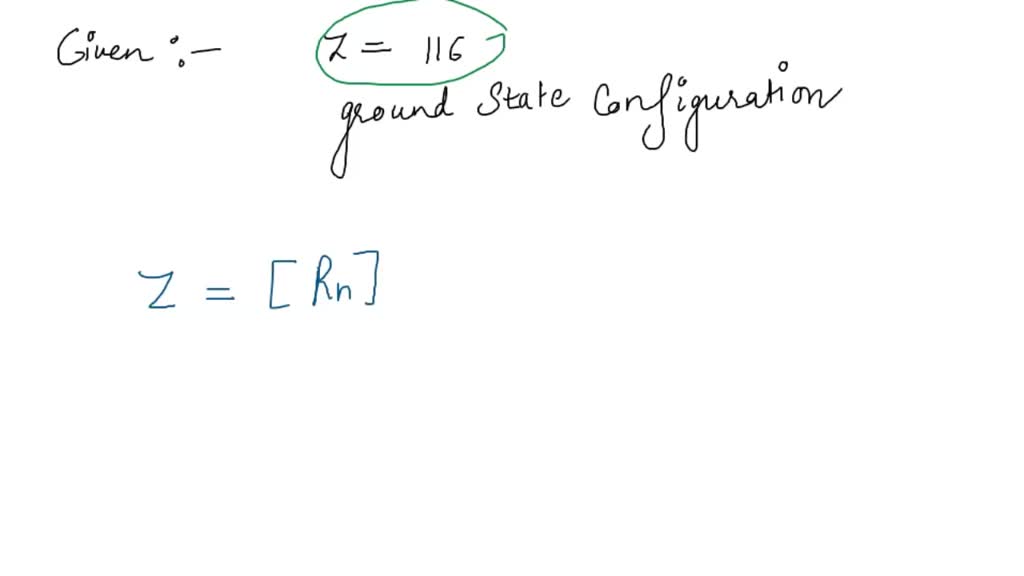 Given :- Z = 116
ground State Configuration
Z = [Rn]